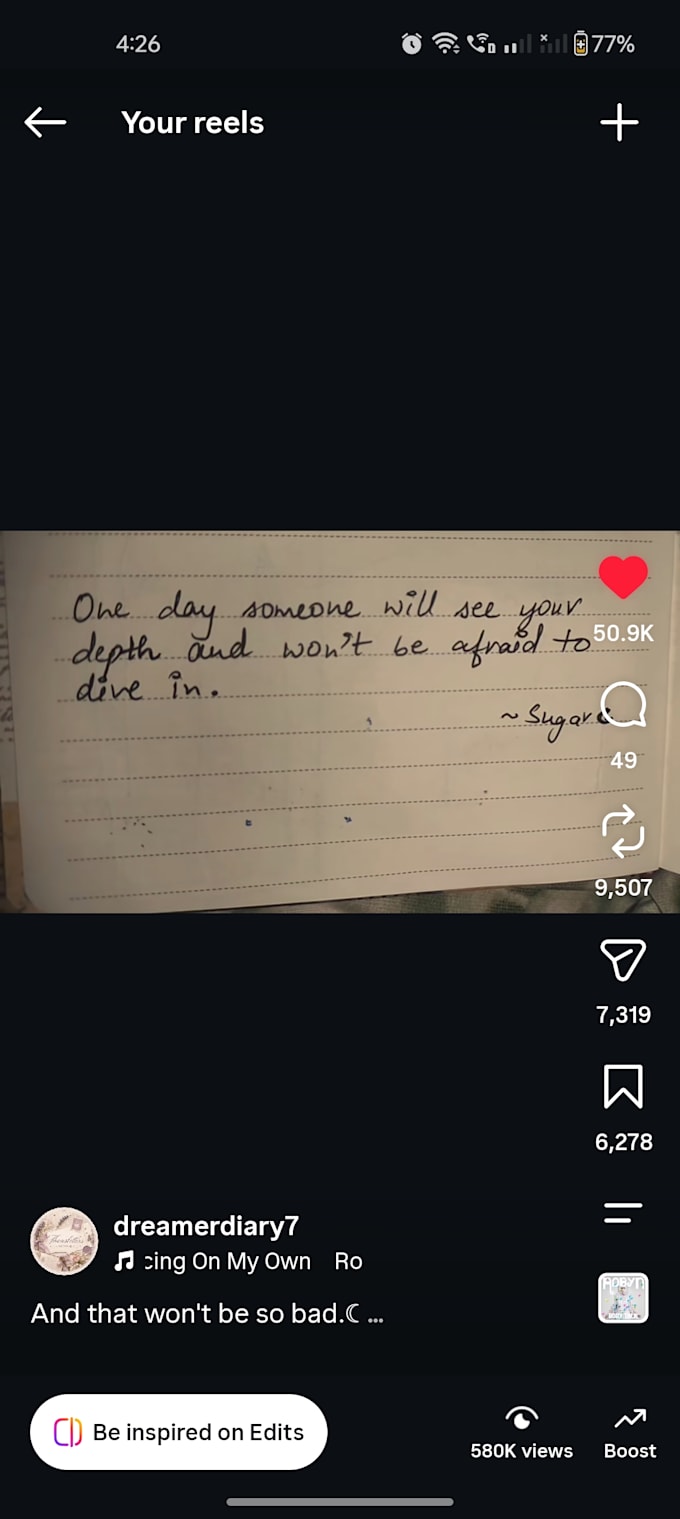 4:26
77%
Your reels
One day someone will see your
depth and won't be afraid to
dive in.
~ Sugar
50.9K
49
9,507
7,319
6,278
dreamerdiary7
cing On My Own Ro
And that won't be so bad.☾ ...
ROBYN
Be inspired on Edits
580K views
Boost